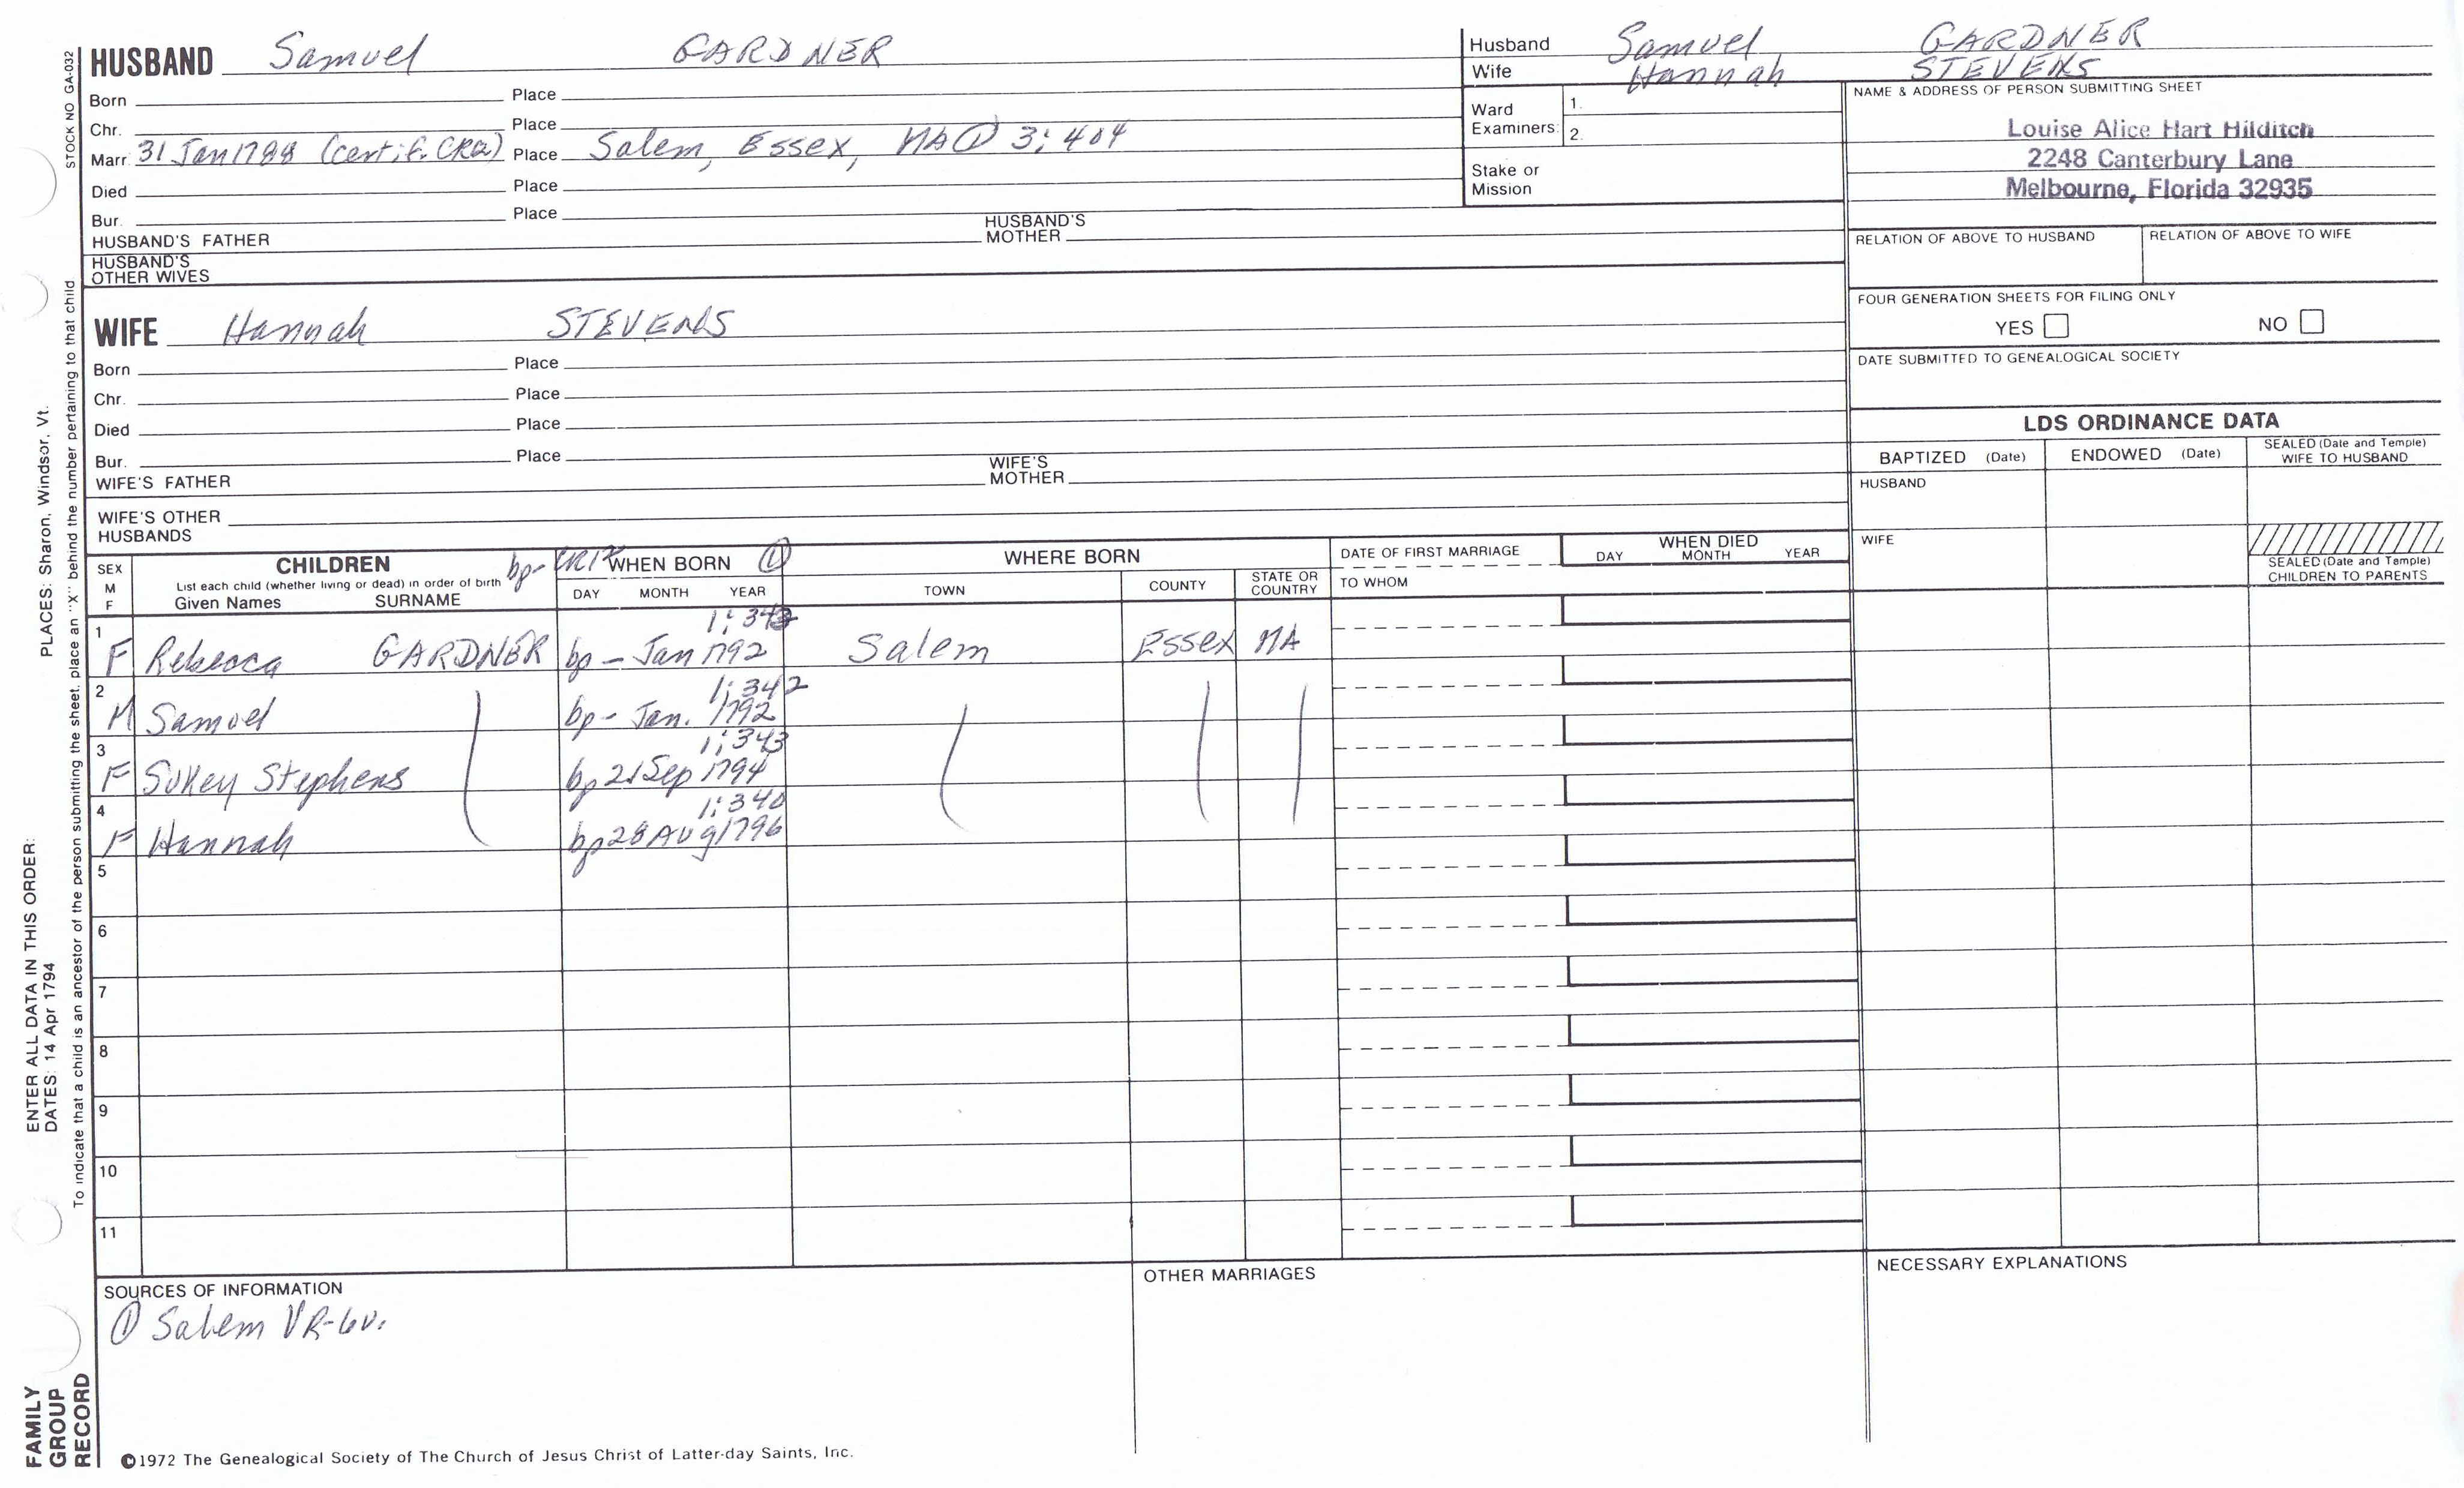 HUSBAND Samuel GARDNER
Husband Samuel GARDNER
Wife Hannah STEVENS
Born Place
Chr. Place
Marr. 31 Jan Place Salem, Essex, MA ① 3:404
Died Place
Bur. Place
HUSBAND'S FATHER HUSBAND'S MOTHER
HUSBAND'S OTHER WIVES
Ward Examiners: 1.
2.
Stake or Mission
NAME & ADDRESS OF PERSON SUBMITTING SHEET
Louise Alice Hart Hilditch
2248 Canterbury Lane
Melbourne, Florida 32935
RELATION OF ABOVE TO HUSBAND RELATION OF ABOVE TO WIFE
FOUR GENERATION SHEETS FOR FILING ONLY
YES NO
DATE SUBMITTED TO GENEALOGICAL SOCIETY
WIFE Hannah STEVENS
Born Place
Chr. Place
Died Place
Bur. Place
WIFE'S FATHER WIFE'S MOTHER
WIFE'S OTHER HUSBANDS
LDS ORDINANCE DATA
BAPTIZED (Date) ENDOWED (Date) SEALED (Date and Temple) WIFE TO HUSBAND
HUSBAND
WIFE
SEALED (Date and Temple) CHILDREN TO PARENTS
SEX M F
CHILDREN
List each child (whether living or dead) in order of birth
Given Names SURNAME
bp- WHEN BORN ①
DAY MONTH YEAR
WHERE BORN
TOWN COUNTY STATE OR COUNTRY
DATE OF FIRST MARRIAGE
TO WHOM
WHEN DIED
DAY MONTH YEAR
1 1:343
F Rebecca GARDNER bp - Jan 1792 Salem Essex MA
2 1:342
M Samuel bp - Jan. 1792
3 1:343
F Sukey Stephens bp 21 Sep 1794
4 1:340
F Hannah bp 28 Aug 1796
5
6
7
8
9
10
11
SOURCES OF INFORMATION
① Salem VR-6v.
OTHER MARRIAGES
NECESSARY EXPLANATIONS
©1972 The Genealogical Society of The Church of Jesus Christ of Latter-day Saints, Inc.
STOCK NO GA-032
PLACES: Sharon, Windsor, Vt.
To indicate that a child is an ancestor of the person submitting the sheet, place an "X" behind the number pertaining to that child
ENTER ALL DATA IN THIS ORDER:
DATES: 14 Apr 1794
FAMILY
GROUP
RECORD